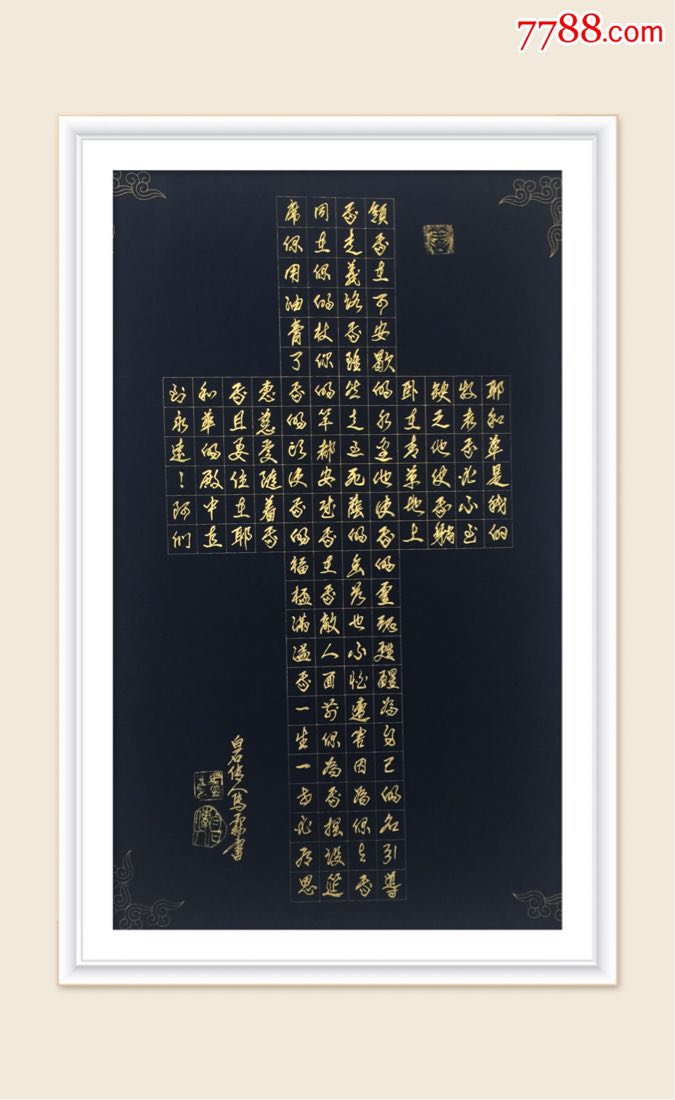 7788.com
耶和華是我的
牧者我必不至
缺乏他使我躺
卧在青草地上
領我在可安歇的水邊他使我的靈魂甦醒為自己的名引導
我走義路我雖然走过死蔭的幽谷也不怕遭害因為你与我
同在你的杖你的竿都安慰我在我敵人面前你為我擺設筵
席你用油膏了我的头使我的福杯滿溢我一生一世必有恩
惠慈愛隨着我
我且要住在耶
和華的殿中直
到永遠！阿们
白石传人馬書